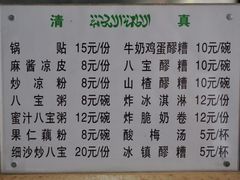 清 真
锅贴 15元/份 牛奶鸡蛋醪糟 10元/碗
麻酱凉皮 8元/份 八宝醪糟 10元/碗
炒凉粉 8元/份 山楂醪糟 10元/碗
八宝粥 8元/份 炸冰淇淋 12元/份
蜜汁八宝粥 12元/份 炸脆奶卷 12元/份
果仁藕粉 8元/碗 酸梅汤 5元/杯
细沙炒八宝 20元/份 冰镇醪糟 5元/杯